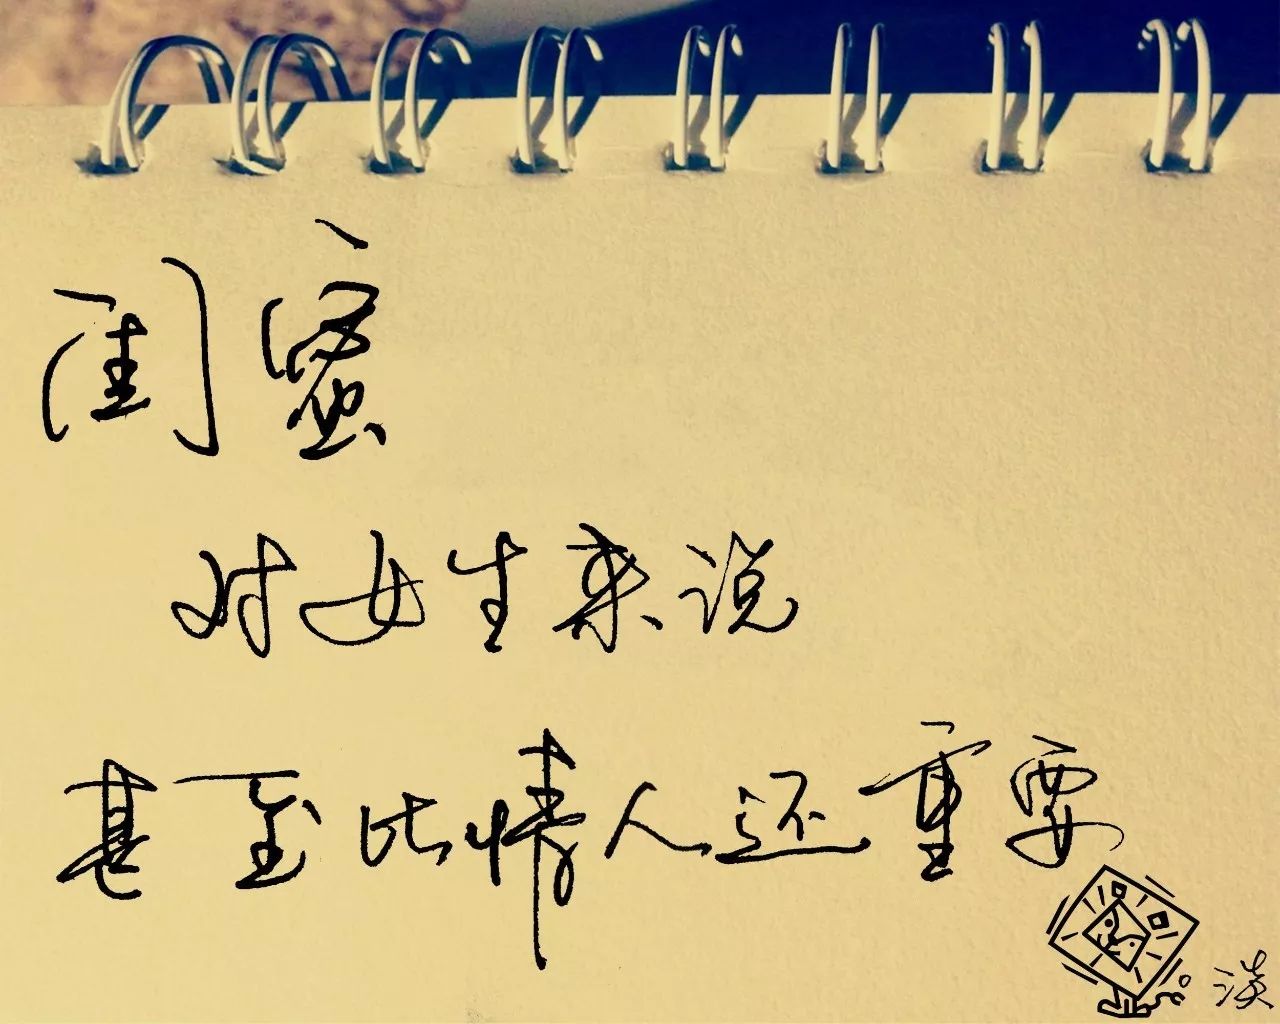 闺蜜
对女生来说
甚至比情人还重要
淡